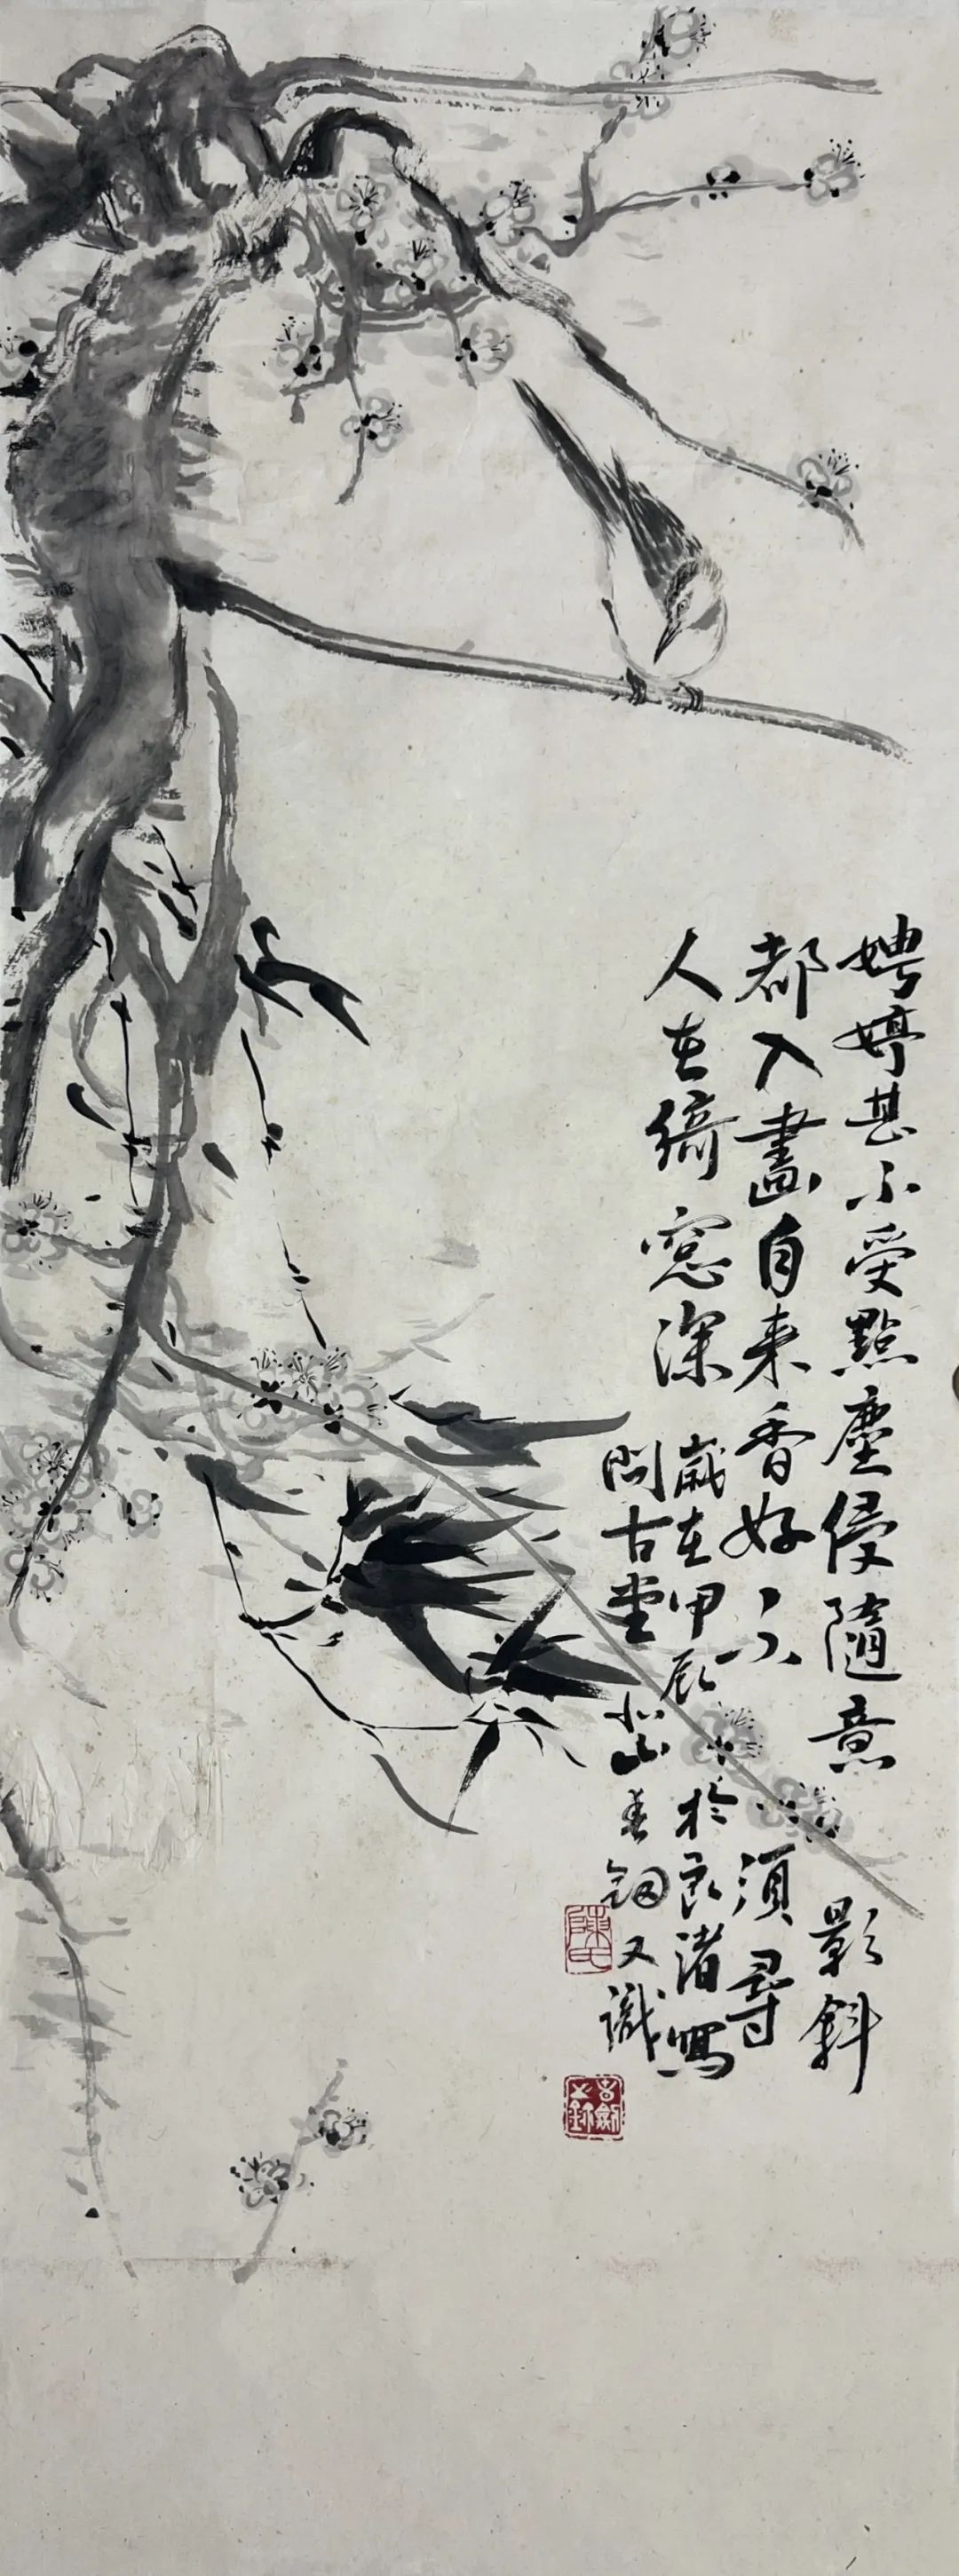 娉婷甚不受點塵侵隨意影斜
都入畫自来香好不須尋
人在綺窓深
歲在甲辰於良渚寫
問古堂北山又識
陳氏